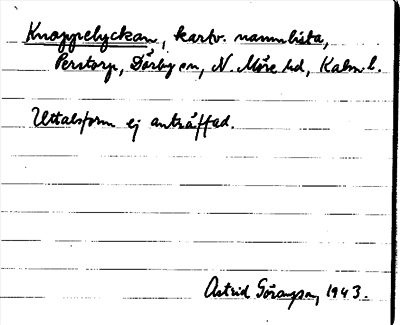 Knoppelyckan, kartv. namnlista,
Perstorp, Dörby sn, N. Möre hd, Kalm. l.
Uttalsform ej anträffad.
Astrid Göransson, 1943.